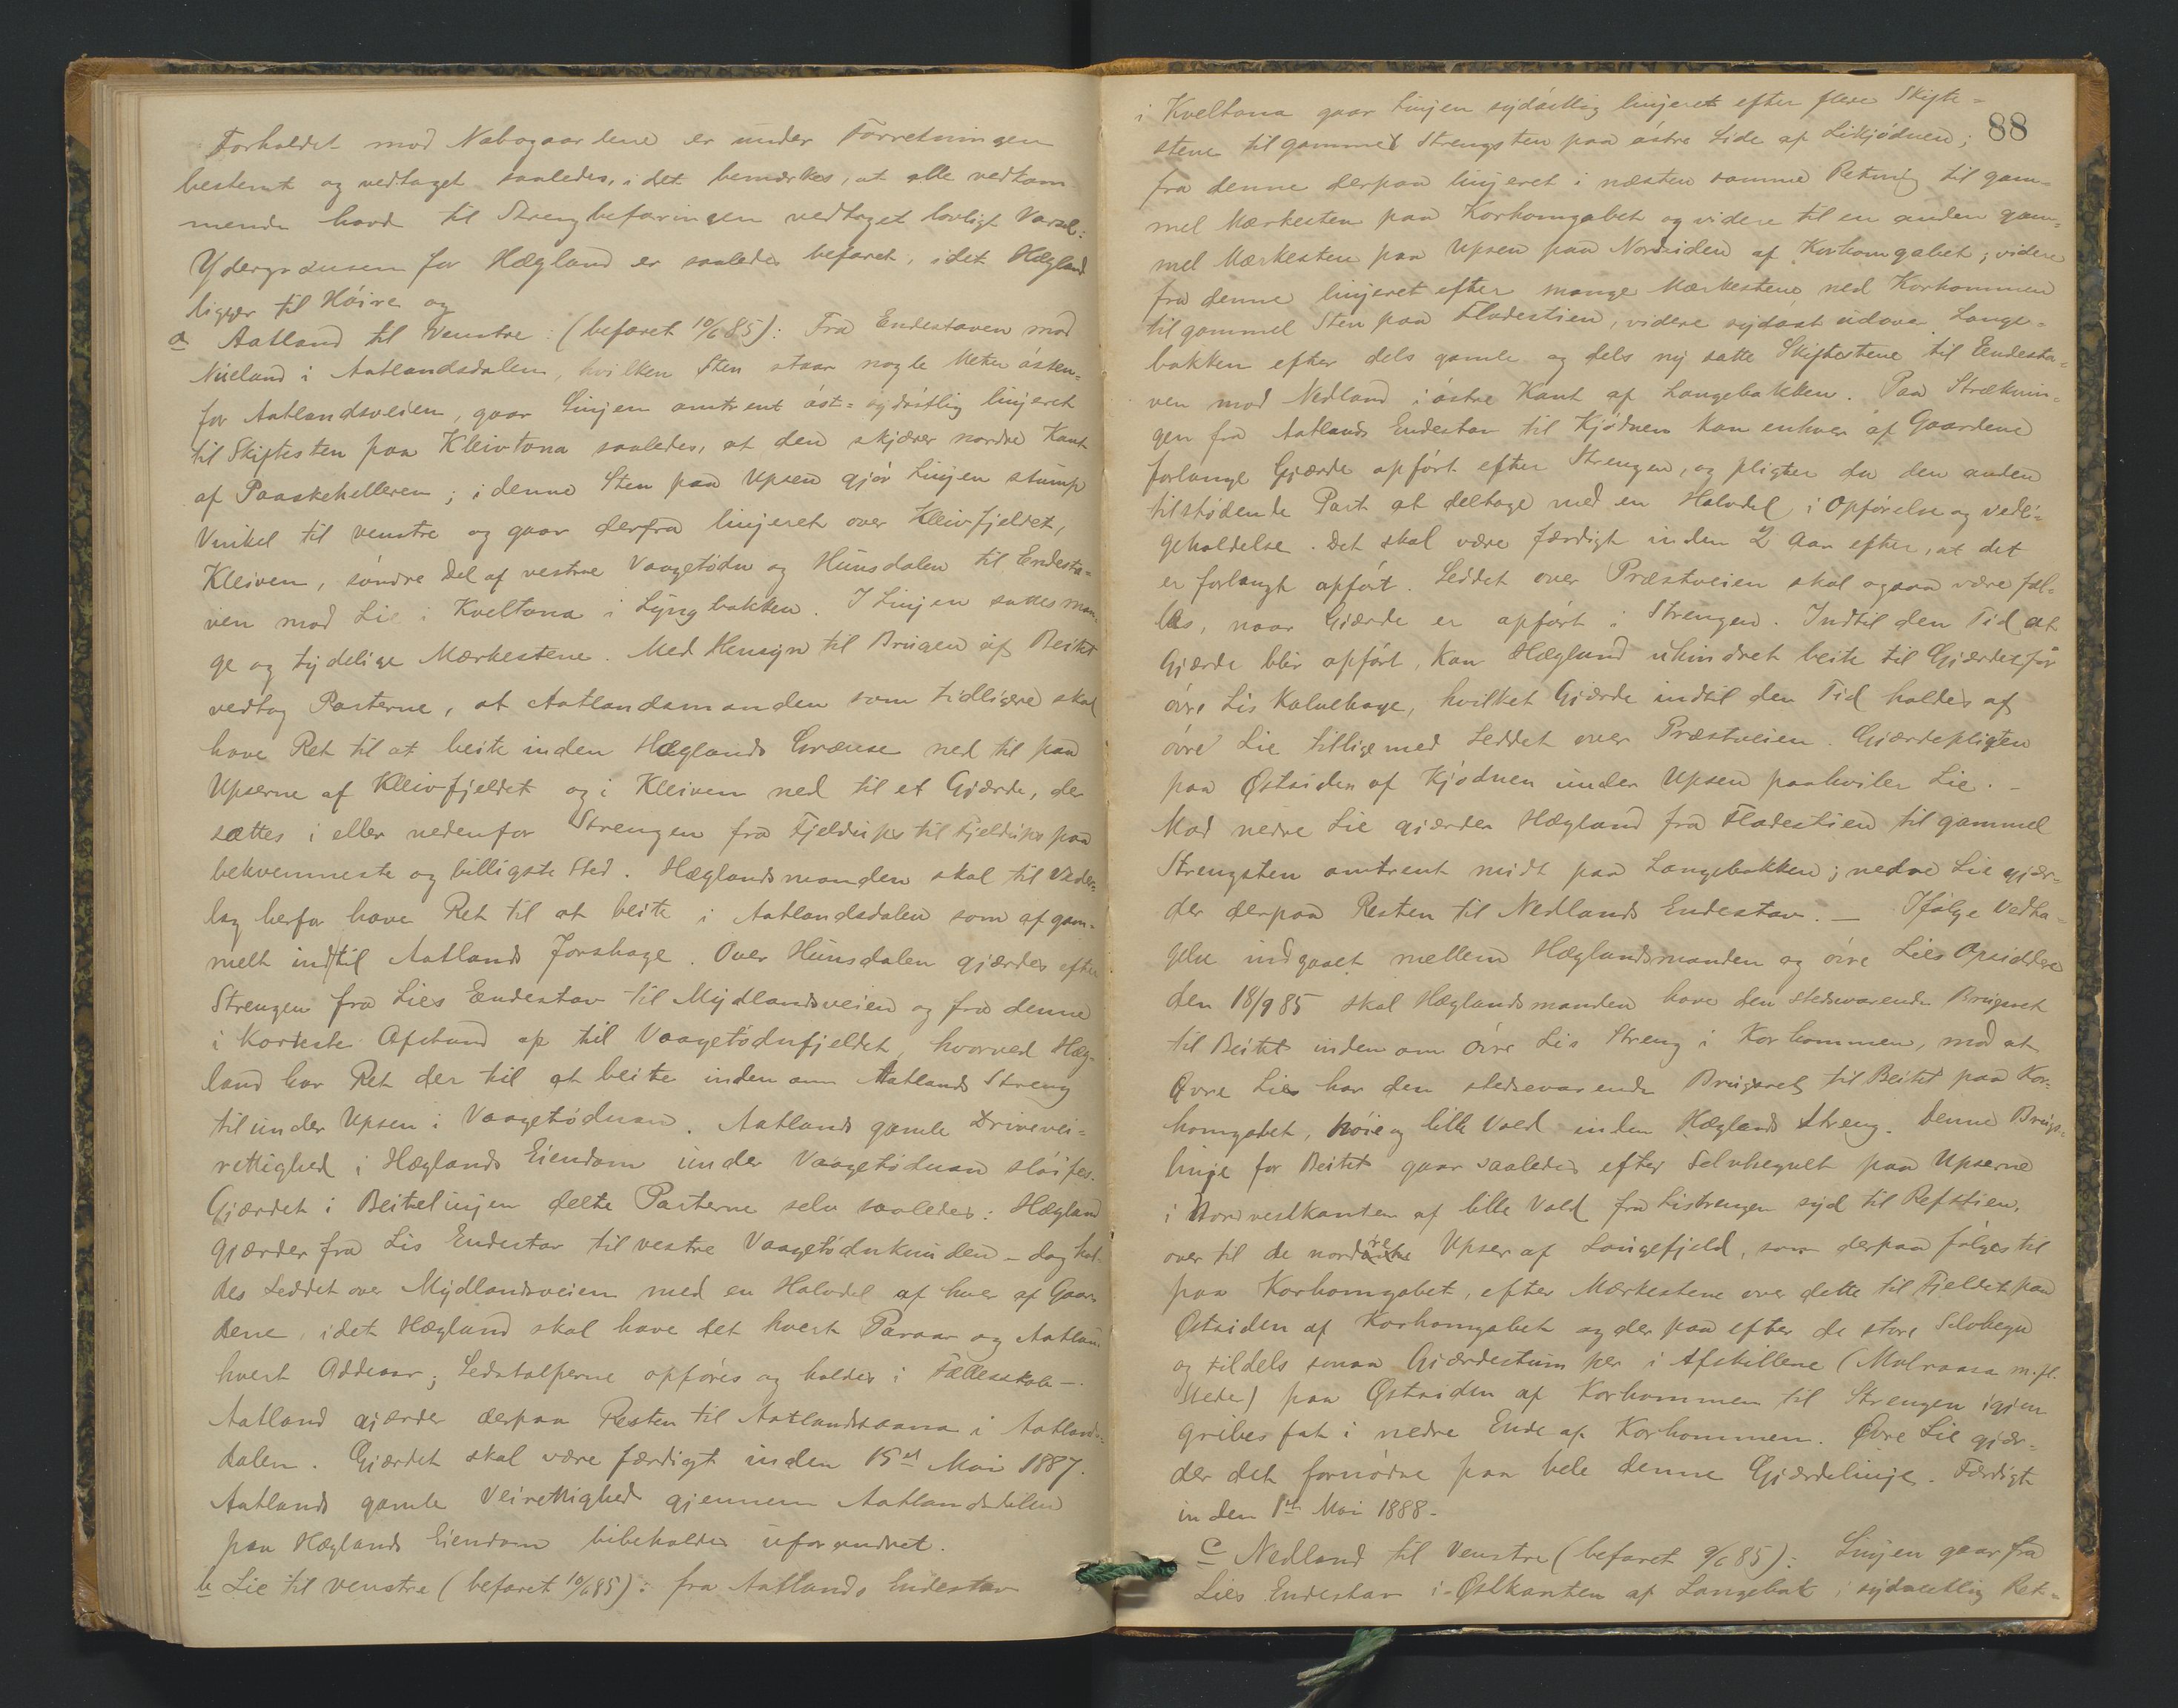 Forholdet mod Nabogaardene er under Forretningen
bestemt og vedtaget saaledes, idet bemærkes, at alle vedkom-
mende havde til Strengbefaringen vedtaget lovligt Varsel:
Ydergrændsen for Hægland er saaledes befaret, idet Hægland
ligger til Høire og
a Aatland til Venstre: (befaret 10/6 85): Fra Endestaven mod
Niieland i Aatlandsdalen, hvilken Sten staar nogle Meter østen-
for Aatlandsveien, gaar Linjen omtrent øst-sydøstlig linjeret
til Skiftesten paa Kleivtona saaledes, at den skjærer nordre Kant
af Paaskehelleren; i denne Sten paa Upsen gjør Linjen stump
Vinkel til venstre og gaar derfra linjeret over Kleivfjeldet,
Kleiven, søndre Del af vestre Vaagetødn og Hunsdalen til Endesta-
ven mod Lie i Kveltona i Lyngbakken. I Linjen sattes man-
ge og tydelige Mærkestene. Med Hensyn til Brugen af Beitet
vedtog Parterne, at Aatlandsmanden som tidligere skal
have Ret til at beite inden Hæglands Grænse ned til paa
Upserne af Kleivfjeldet og i Kleiven ned til et Gjærde, der
sættes i eller nedenfor Strengen fra Fjeldups til Fjeldups paa
bekvemmeste og billigste Sted. Hæglandsmanden skal til Veder-
lag herfor have Ret til at beite i Aatlandsdalen som af gam-
melt indtil Aatlands Jorshage. Over Hunsdalen gjærdes efter
Strengen fra Lies Endestav til Mydlandsveien og fra denne
i korteste Afstand op til Vaagetødnfjeldet, hvorved Hæg-
land har Ret der til at beite inden om Aatlands Streng
til under Upsen i Vaagetødnan. Aatlands gamle Drivevei-
rettighed i Hæglands Eiendom under Vaagetødnan sløifes.
Gjærdet i Beitelinjen delte Parterne selv saaledes: Hægland
gjærder fra Lis Endestav til vestre Vaagetødnkunden - dog hol-
des Leddet over Mydlandsveien med en Halvdel af hver af Gaar-
dene, idet Hægland skal have det hvert Paraar og Aatland
hvert Oddeaar; Ledstolperne opføres og holdes i Fællesskab -.
Aatland gjærder derpaa Resten til Aatlandsaana i Aatlands-
dalen. Gjærdet skal være færdigt inden 15de Mai 1887.
Aatlands gamle Veirettighed gjennem Aatlandsdalen
paa Hæglands Eiendom bibeholdes uforandret.
b Lie til venstre (befaret 10/6 85): fra Aatlands Endestav
88
i Kveltona gaar Linjen sydøstlig linjeret efter flere Skifte-
stene til gammel Strengsten paa østre Side af Litjødnen;
fra denne derpaa linjeret i næsten samme Retning til gam-
mel Mærkesten paa Korhomgabet og videre til en anden gam-
mel Mærkesten paa Upsen paa Nordsiden af Korhomgabet; videre
fra denne linjeret efter mange Mærkestene ned Korhommen
til gammel Sten paa Fladestien, videre sydøst udover Lange-
bakken efter dels gamle og dels ny satte Skiftestene til Endesta-
ven mod Nedland i østre Kant af Langebakken. Paa Stræknin-
gen fra Aatlands Endestav til Kjødnen kan enhver af Gaardene
forlange Gjærde opført efter Strengen, og pligter da den anden
tilstødende Part at deltage med en Halvdel i Opførelse og vedli-
geholdelse. Det skal være færdigt inden 2 Aar efter, at det
er forlangt opført. Leddet over Præstveien skal ogsaa være fæl-
les, naar Gjærde er opført i Strengen. Indtil den Tid at
Gjærde blir opført, kan Hægland uhindret beite til Gjærdet for
øvre Lis Kalvehage, hvilket Gjærde indtil den Tid holdes af
øvre Lie tilligemed Leddet over Præstveien. Gjærdepligten
paa Østsiden af Kjødnen under Upsen paahviler Lie. -
Mod nedre Lie gjærder Hægland fra Fladestien til gammel
Strengsten omtrent midt paa Langebakken; nedre Lie gjær-
der derpaa Resten til Nedlands Endestav. — Ifølge Vedta-
gelse indgaaet mellem Hæglandsmanden og øvre Lies Opsiddere
den 18/9 85 skal Hæglandsmanden have den stedsvarende Brugsret
til Beitet inden om øvre Lis Streng i Korhommen, mod at
Øvre Lie har den stedsevarende Brugsret til Beitet paa Kor-
homgabet, høie og lille Vold inden Hæglands Streng. Denne Brugs-
linje for Beitet gaar saaledes efter Selvhegnet paa Upserne
i Nordvestkanten af lille Vold fra Listrengen syd til Refstien,
over til de nordre Upser af Langefjeld, som derpaa følges til
paa Korhomgabet, efter Mærkestene over dette til Fjeldet paa
Østsiden af Korhomgabet og der paa efter de store Selvhegn
og tildels smaa Gjærdestumper i Afskillene (Molraasa m. fl.
Steder) paa Østsiden af Korhommen til Strengen igjen
gribes fat i nedre Ende af Korhommen. Øvre Lie gjær-
der det fornødne paa hele denne Gjærdelinje. Færdigt
inden 1ste Mai 1888.
c Nedland til Venstre (befaret 9/6 85): Linjen gaar fra
Lies Endestav i Østkanten af Langebak i sydvestlig Ret-